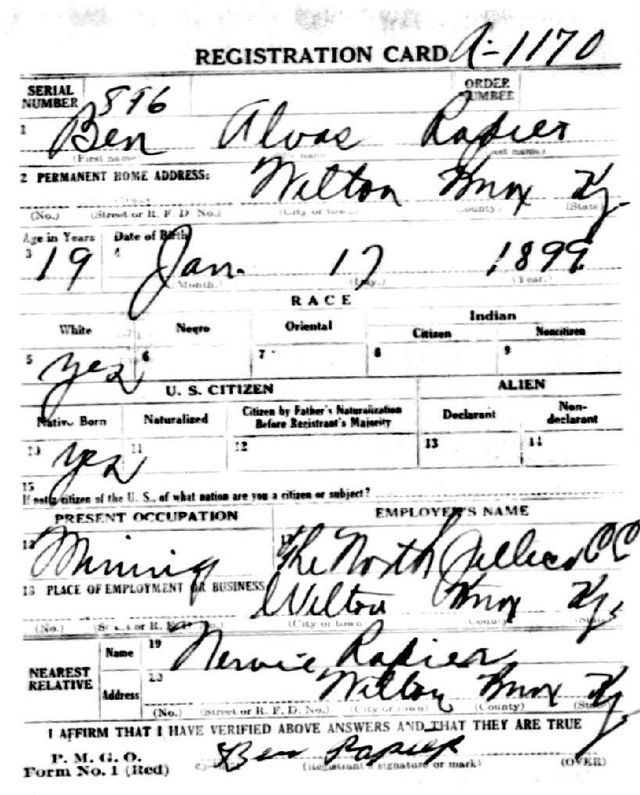 REGISTRATION CARD A-1170
SERIAL NUMBER 896 ORDER NUMBER
1 Ben Alvas Rapier
(First name)
2 PERMANENT HOME ADDRESS: Wilton Knox Ky.
(No.) (Street or R. F. D. No.) (City or town) (County) (State)
Age in Years Date of Birth
3 19 4 Jan. 17 1899
(Month.) (Day.) (Year.)
RACE
White Negro Oriental Indian
Citizen Noncitizen
5 yes 6 7 8 9
U. S. CITIZEN ALIEN
Native Born Naturalized Citizen by Father's Naturalization Before Registrant's Majority Declarant Non-declarant
10 yes 11 12 13 14
15
If not a citizen of the U. S., of what nation are you a citizen or subject?
PRESENT OCCUPATION EMPLOYER'S NAME
Mining The North Jellico CC
18 PLACE OF EMPLOYMENT OR BUSINESS Wilton Knox Ky.
(No.) (Street or R. F. D. No.) (City or town) (County) (State)
NEAREST RELATIVE Name 19 Nervie Rapier
Address 20 Wilton Knox Ky
(No.) (Street or R. F. D. No.) (City or town) (County) (State)
I AFFIRM THAT I HAVE VERIFIED ABOVE ANSWERS AND THAT THEY ARE TRUE
P. M. G. O.
Form No. 1 (Red) Ben Rapier
(Registrant's signature or mark) (OVER)